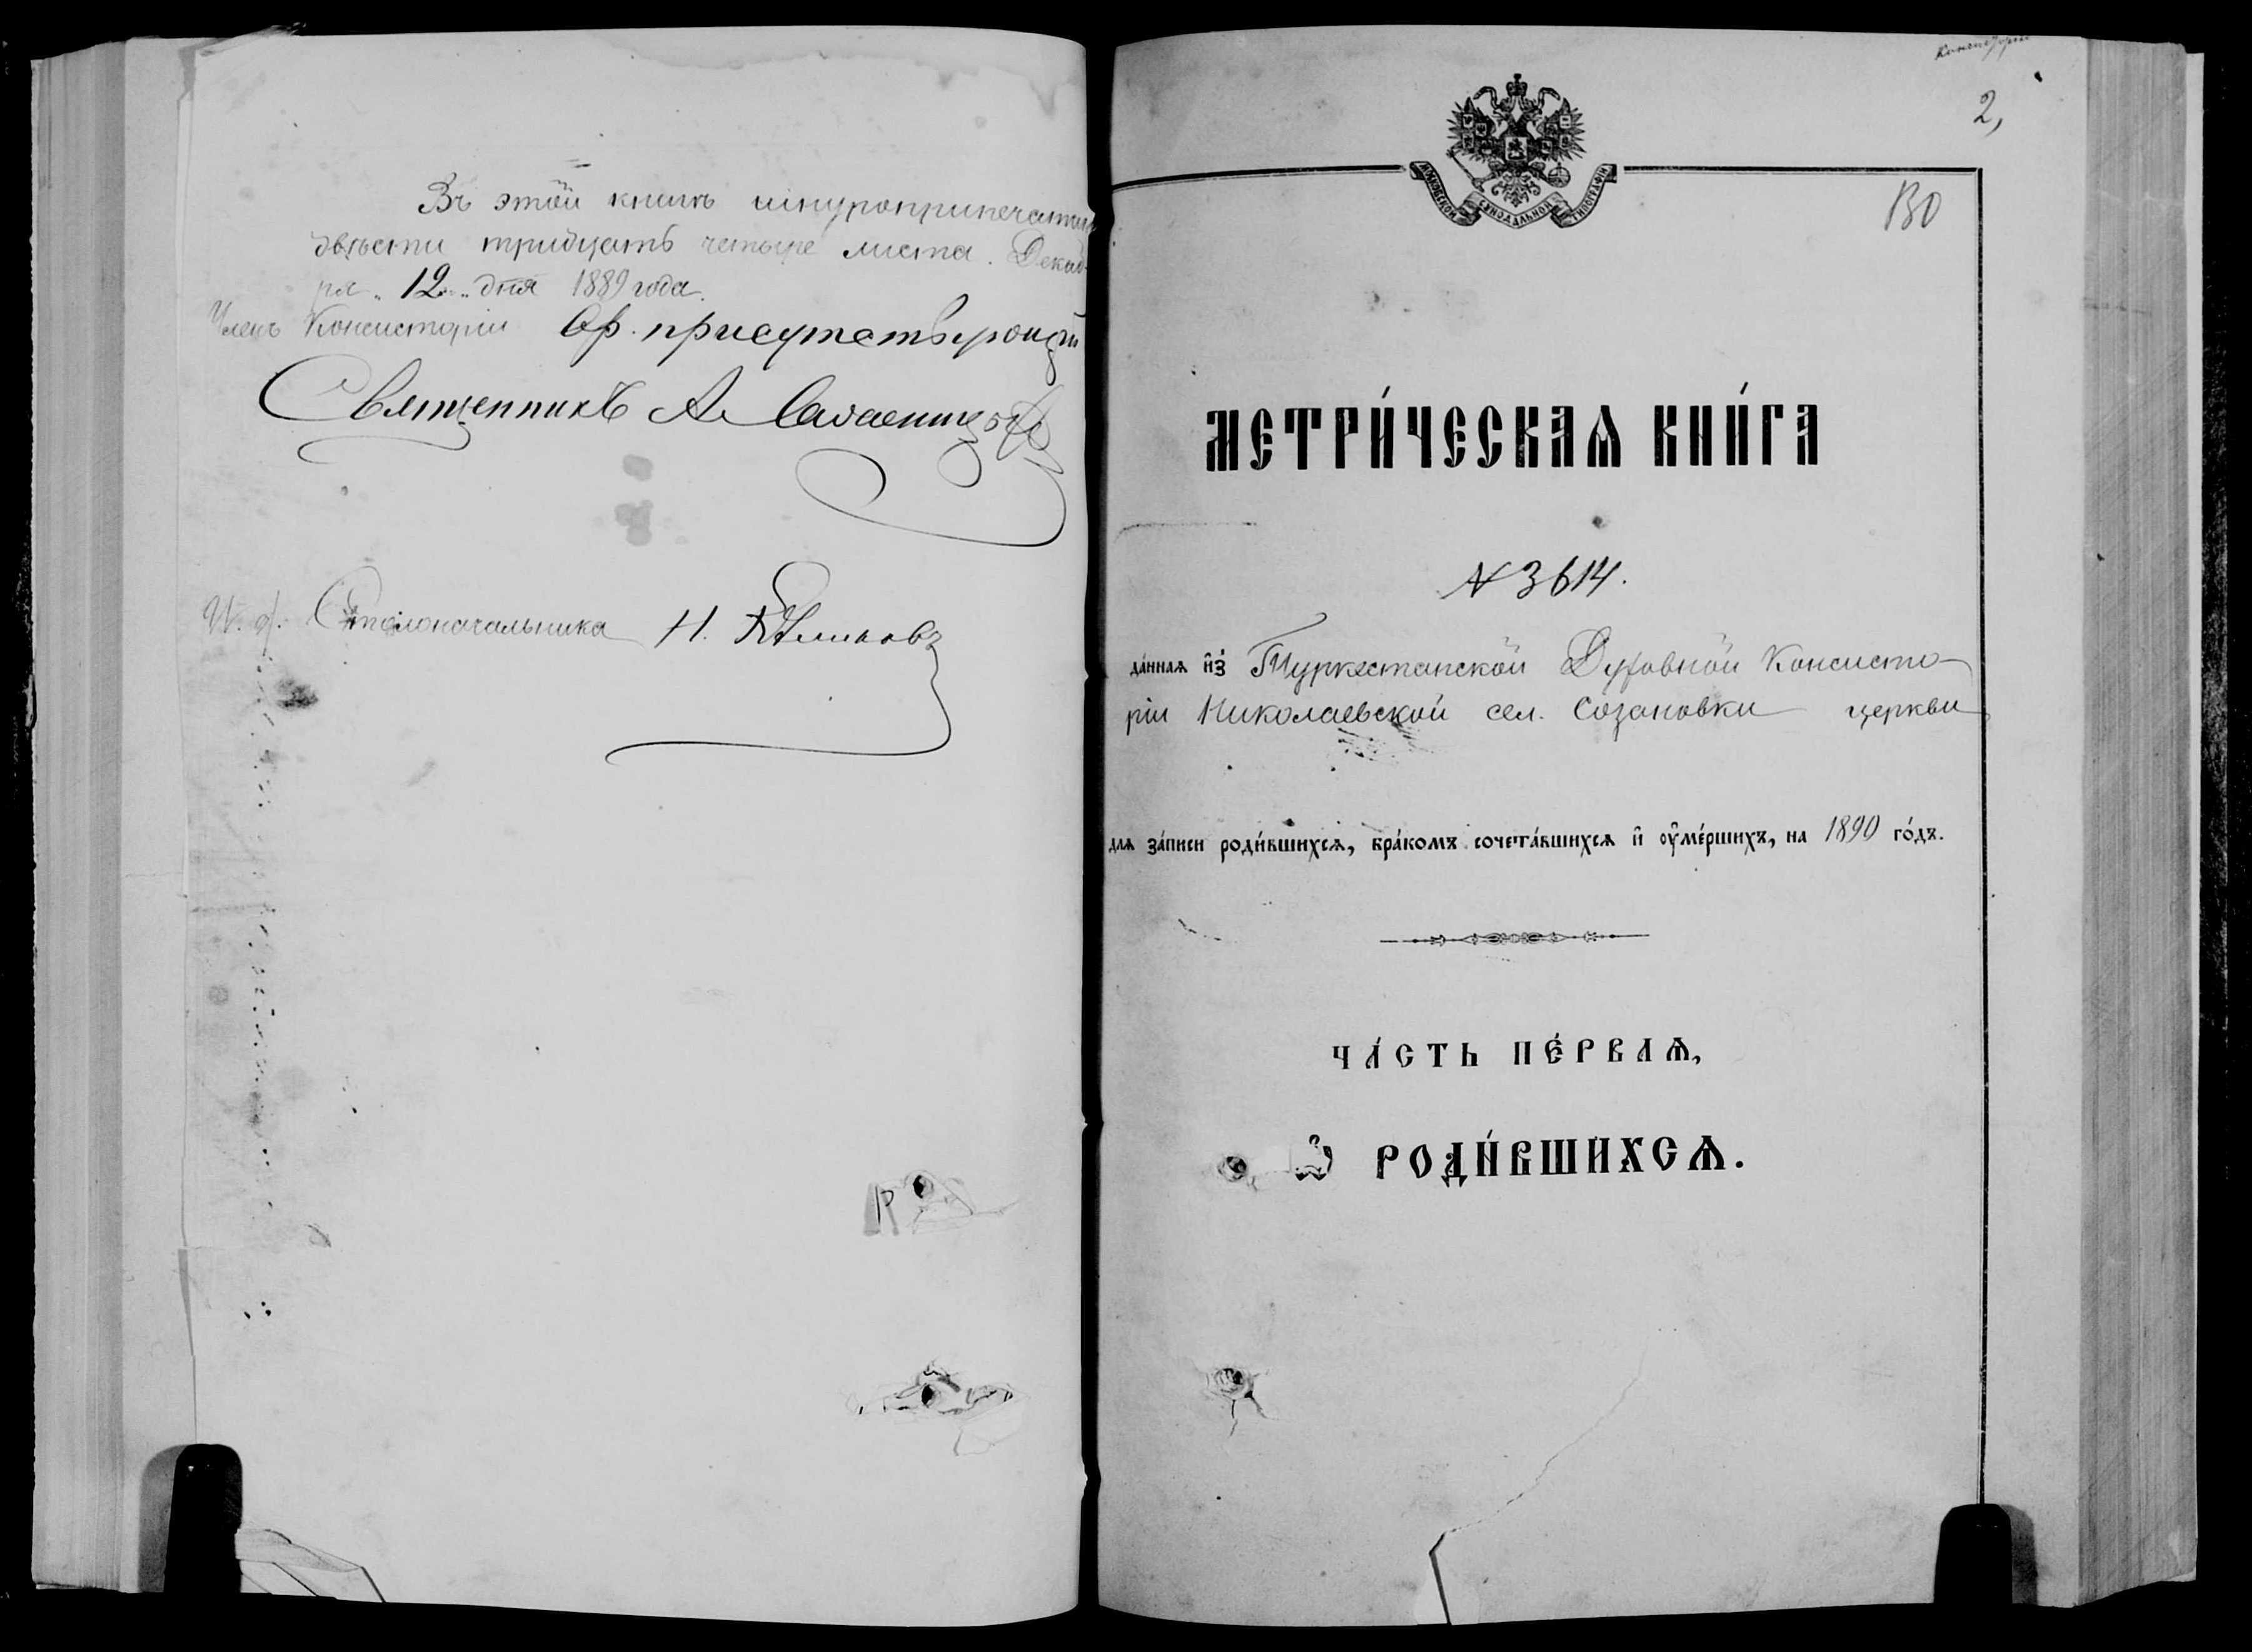 Въ этой книгѣ шнуроприпечатан
двѣсти тридцать четыре листа. Декаб-
ря „12„ дня 1889 года.
Членъ Консисторіи Вр. присутствующій
Священникъ А.
И. д. Столоначальника Н.
Консисторіи
2,
МОСКОВСКОЙ СѴНОДАЛЬНОЙ ТИПОГРАФІИ
130
МЕТРИ́ЧЕСКАѦ КНИ́ГА
№ 3614.
да́ннаѧ и҆з̾ Туркестанской Духовной Консисто-
ріи Николаевской сел. Созановки церкви
длѧ за́писи роди́вшихсѧ, бра́комъ сочета́вшихсѧ и҆ ᲂу҆ме́ршихъ, на 1890 го́дъ.
ЧА́СТЬ ПЕ́РВАѦ,
Ѽ РОДИ́ВШИХСѦ.